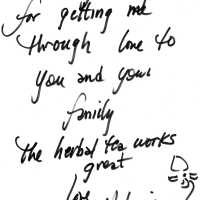 for getting me
through love to
you and your
family
the herbal tea works
great
love